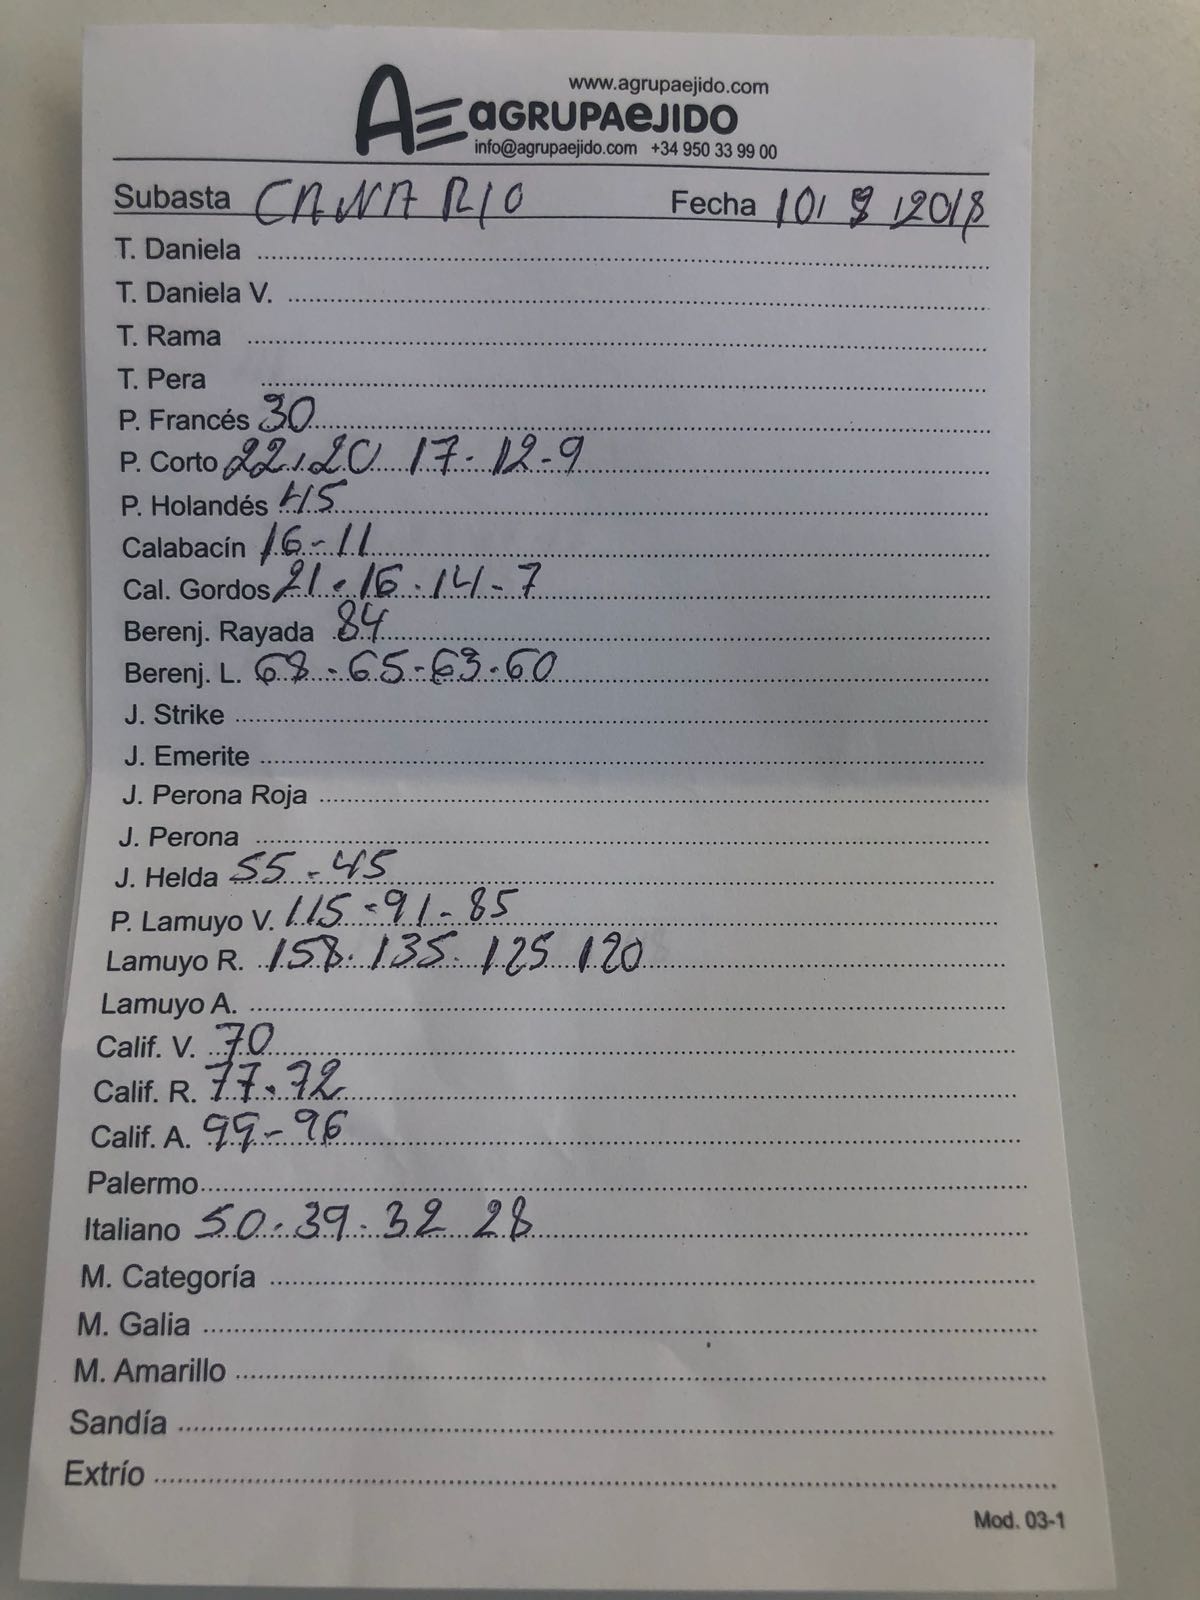 www.agrupaejido.com
AE aGRUPAeJIDO
info@agrupaejido.com +34 950 33 99 00
Subasta CANARIO Fecha 10/ /2018
T. Daniela
T. Daniela V.
T. Rama
T. Pera
P. Francés 30
P. Corto 22.20 17-12-9
P. Holandés 45
Calabacín 16-11
Cal. Gordos 21-16-14-7
Berenj. Rayada 84
Berenj. L. 68-65-63-60
J. Strike
J. Emerite
J. Perona Roja
J. Perona
J. Helda 55-45
P. Lamuyo V. 115-91-85
Lamuyo R. 158.135.125 120
Lamuyo A.
Calif. V. 70
Calif. R. 77.72
Calif. A. 99-96
Palermo
Italiano 50.39.32 28
M. Categoría
M. Galia
M. Amarillo
Sandía
Extrío
Mod. 03-1